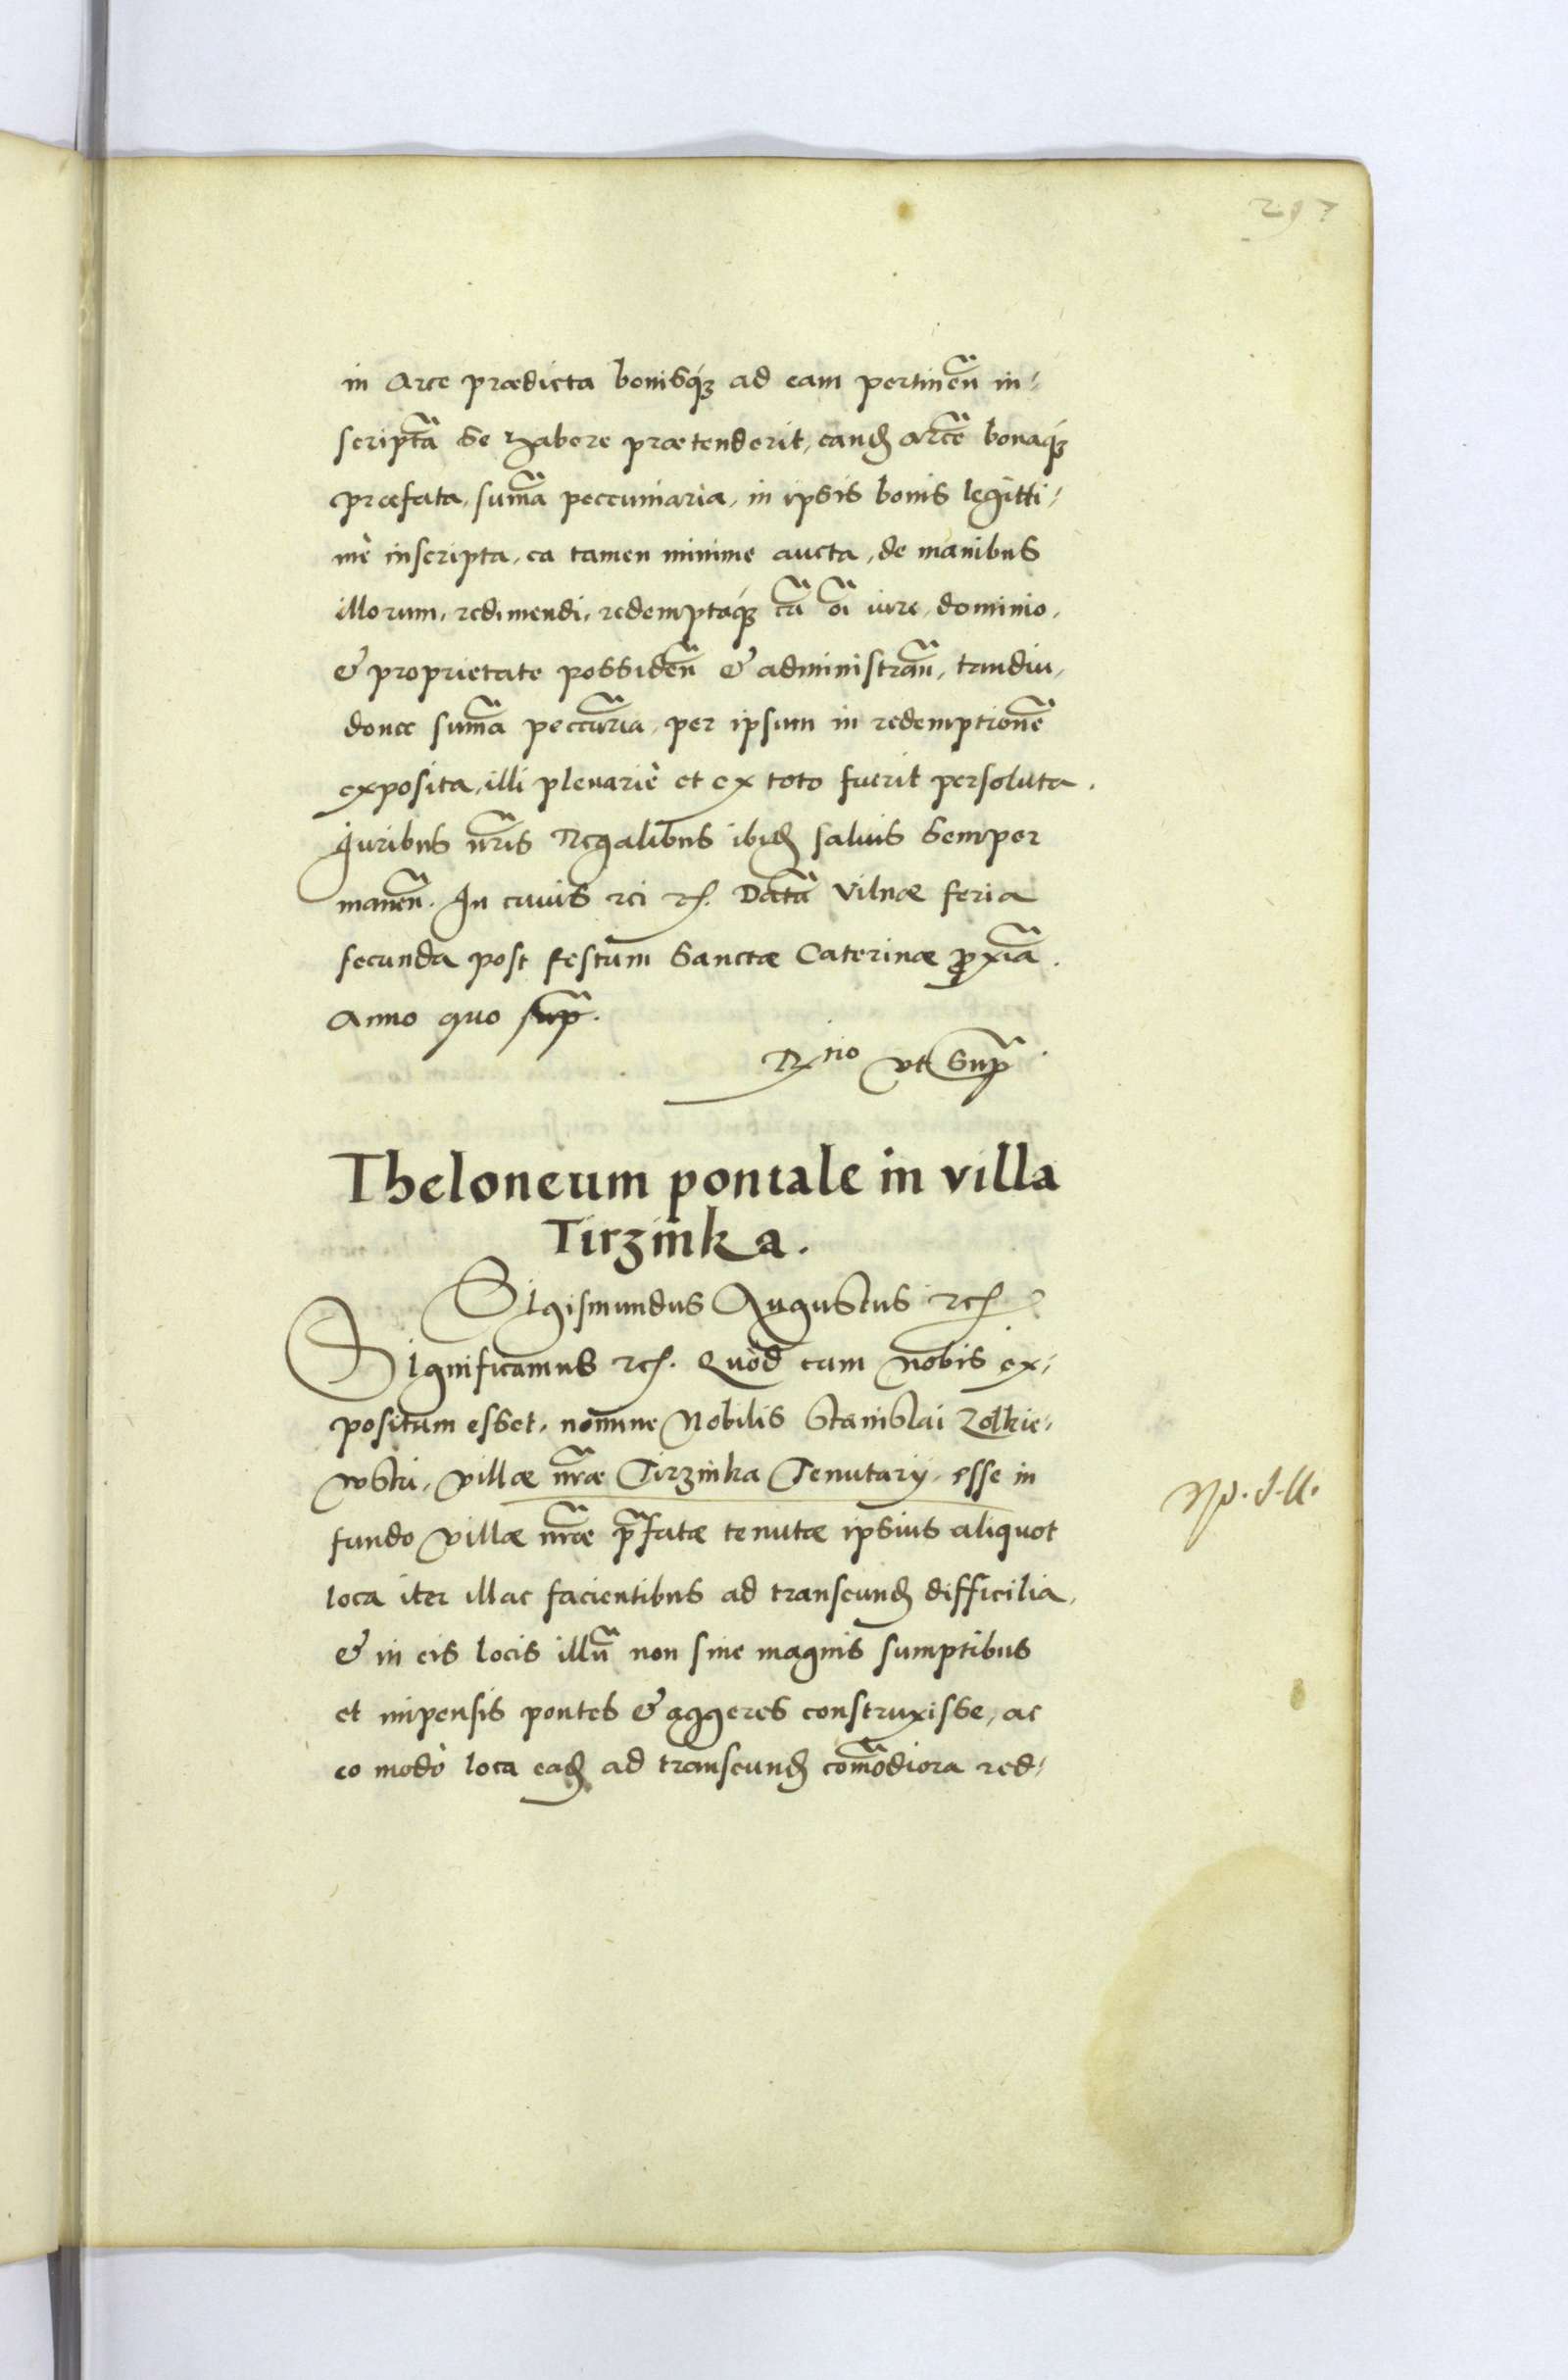 297
in Arce prædicta bonisq́ꝫ ad eam pertineñ in-
scriptã se habere prætenderit, eanđ arcẽ bonaq́ꝫ
præfata, sum̃a peccuniaria, in ipsis bonis legitti-
mè inscripta, ea tamen minime aucta, de manibus
illorum, redimendi, redemptaq́ꝫ eã oĩ iure, dominio,
& proprietate possideñ & administrañ, tandiu,
donec sum̃a peccũria, per ipsum in redemptionẽ
exposita, illi plenariè et ex toto fuerit persoluta.
Juribus nr̃is Regalibus ibiđ saluis semper
maneñ. In cuius rei rc̃. Datã Vilnæ feria
secunda post festum Sanctæ Caterinæ ꝓxiã.
Anno quo sup̃.
Rtio vt sup̃.
Theloneum pontale in villa
Tirzinka.
Sigismundus Augustus rc̃
Significamus rc̃. Quòd cum nobis ex-
positum esset, nomine Nobilis Stanislai Zolkie-
wski, villæ nr̃æ Tirzinka Tenutarij, esse in
fundo villæ nr̃æ p̃fatæ tenutæ ipsius aliquot
loca iter illac facientibus ad transeunđ difficilia,
& in eis locis illũ non sine magnis sumptibus
et impensis pontes & aggeres construxisse, ac
eo modò loca eađ ad transeunđ com̃odiora red-